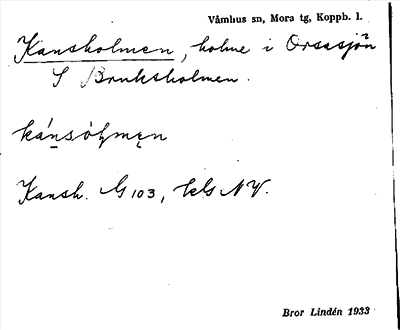 Våmhus sn, Mora tg, Koppb. l.
Kansholmen, holme i Orsasjön
S Bruksholmen.
kánsòɫmęn
Kansh. G103, kls NV.
Bror Lindén 1933